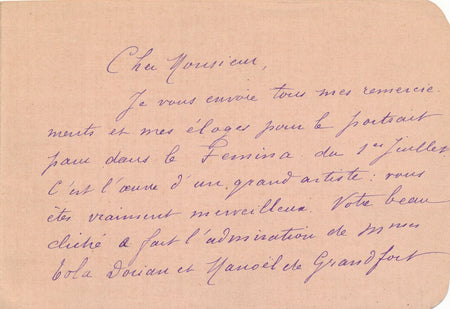 Cher Monsieur,
Je vous envoie tous mes remercie-
ments et mes éloges pour le portrait
paru dans le Femina du 1er Juillet
C'est l'œuvre d'un grand artiste : vous
êtes vraiment merveilleux. Votre beau
cliché a fait l'admiration de mmes
Tola Dorian et Manoël de Grandfort